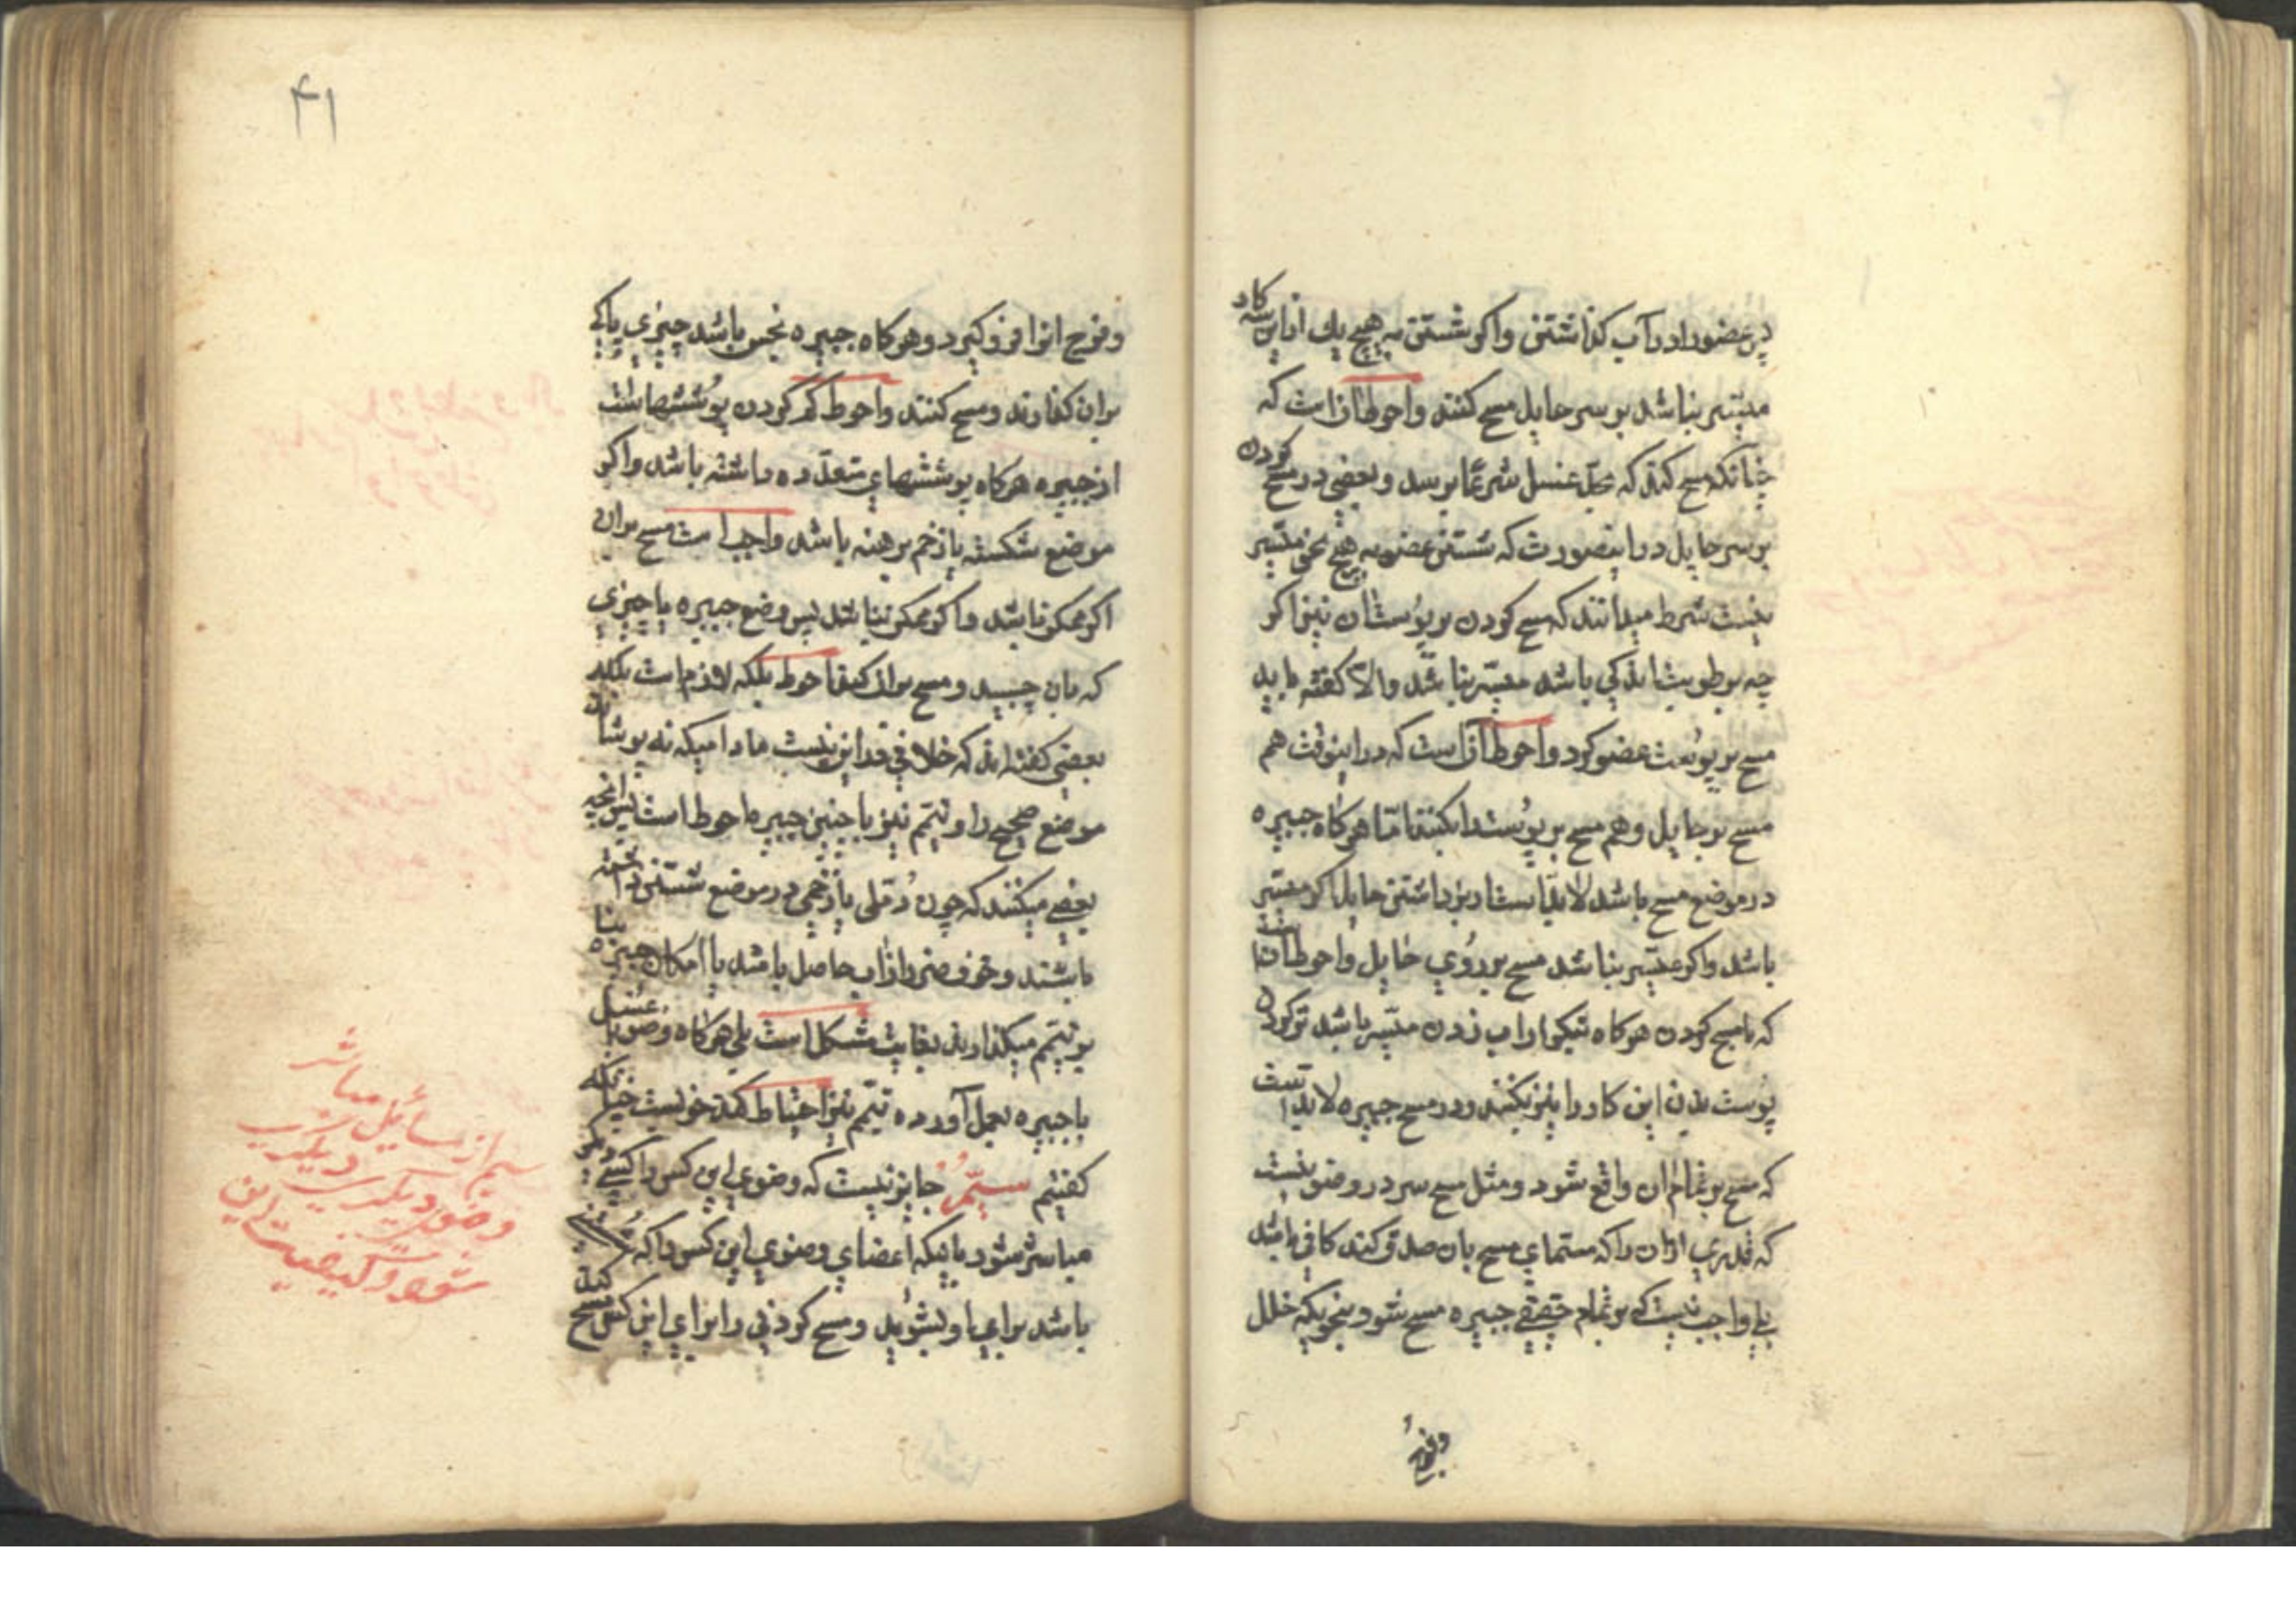 در عضو را در آب گذاشتن و اگر شستن به هیچ یك از این سه کار
میسّر نباشد بر سر حایل مسح کنند و احوط آن است که
چنانکه مسح کند که محلّ غسل شرعًا برسد و بعضی در مسح کردن
بر سر حایل در اینصورت که شستن عضو به هیچ نحو میّسر
نیست شرط میدانند که مسح کردن بر پوست آن نیز اگر
چه برطوبت اندکی باشد میّسر نباشد والّا گفته باید
مسح بر پوست عضو کرد و احوط آن است که در اینوقت هم
مسح بر حایل و هم مسح بر پوست را بکنند امّا هرگاه جبیره
در موضع مسح باشد لابدّ است از برداشتن حایل اگر میسّر
باشد و اگر میّسر نباشد مسح بر روی حایل و احوط آن است
که با مسح کردن هرگاه تیکرار اب زدن میّسر باشد تر کردن
پوست بدن این کار را نیز بکنند و در مسح جبیره لابدّ است
که مسح بر تمام آن واقع شود و مثل مسح سر در وضو نیست
که قدری از آن را که مسمّای مسح بان صدق کند کافی باشد
بلی واجب نیست که بر تمام حقیقی جبیره مسح شود بنحویکه خلل
وفرج
۴۱
و فرج انرا فرو گیرد و هرگاه جبیره نجس باشد چیزی پاکی
بران گذارند و مسح کنند و احوط کم کردن پوششهاست
از جبیره هرگاه پوششهای متعدّده داشته باشد و اگر
موضع شکسته یا زخم برهنه باشد واجب است مسح بران
اگر ممکن باشد و اگر ممکن نباشد پس وضع جبیره یا چیزی
که بان چسبد و مسح بران کند احوط بلکه لازم است بلکه
بعضی گفته اند که خلافی در این نیست مادامیکه نپوشاند
موضع صحیح را و تیمّم نیز با چنین جبیره احوط است پس انچه
بعضی میکنند که چون دُمّلی یا زخمی در موضع شستن داشته
باشند و خوف ضرر از اب حاصل باشد با امکان جبیره بنا
بر تیمّم میگذارند بغایت مشکل است بلی هرگاه وضو یا غسل
با جبیره بعمل آورده تیمّم نیز احتیاط کند خوبست چنانکه
گفتیم سیّم جایز نیست که وضوی این کس را کسی دیگر
مباشر شود باینکه اعضای وضوی این کس را که
باشد برای او بشوید و مسح کردنی را برای این کس مسح کند
سیم از مسائل مباشر
وضوی دیگری دیگری
شود و کیفیت این